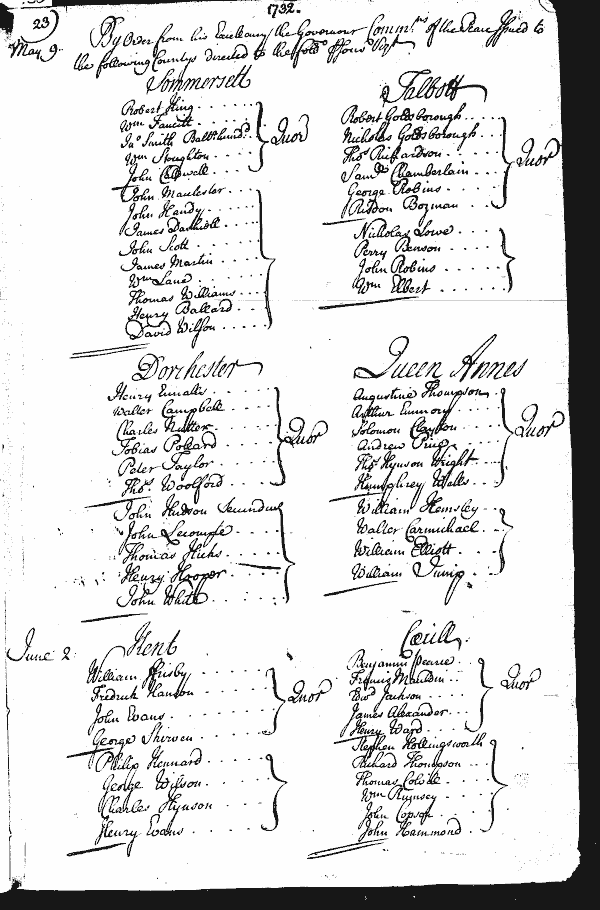 23
1732.
May 9.
By Order from his Excellency the Governor Comm.ns of the Peace Issued to
the following Countys directed to the
Sommersett
Robert King
Wm Faucett
Jno Smith
Wm Stoughton
John Caldwell
Quor
John Maulester
John Handy
James
John Scott
James Martin
Wm Lane
Thomas Williams
Henry Ballard
David Wilson
Talbott
Robert Goldsborough
Nicholas Goldsborough
Thos Richardson
Samll Chamberlain
George Robins
Risdon Bozman
Quor
Nicholas Lowe
Perry Benson
John Robins
Wm Elbert
Dorchester
Henry Ennalls
Walter Campbell
Charles Nutter
Tobias Pollard
Peter Taylor
Thos. Woolford
Quor
John Hudson Secundus
John Lecompte
Thomas Hicks
Henry Hooper
John White
Queen Annes
Augustine Thompson
Arthur Emmory
Solomon Clayton
Andrew Price
Thos Hynson Wright
Humphrey Wells
Quor
William Hemsley
Walter Carmichael
William Elliott
William Jump
June 2
Kent
William Frisby
Fredrick Hanson
John Evans
George Skirven
Quor
Philip Kennard
George Wilson
Charles Hynson
Henry Evans
Cecill
Benjamin Pearce
Francis Mauldin
Edwd Jackson
James Alexander
Henry Ward
Quor
Stephen Hollingsworth
Richard Thompson
Thomas Colvill
Wm Rumsey
John Copson
John Hammond